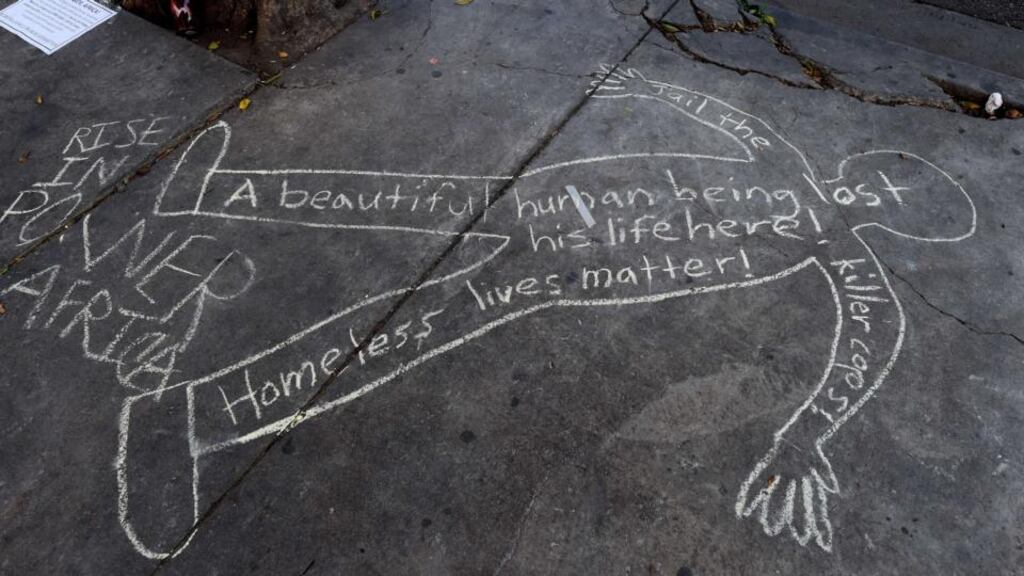 RISE
IN
POWER
AFRICA
Jail the
A beautiful human being lost
his life here!
Homeless lives matter!
killer cops!